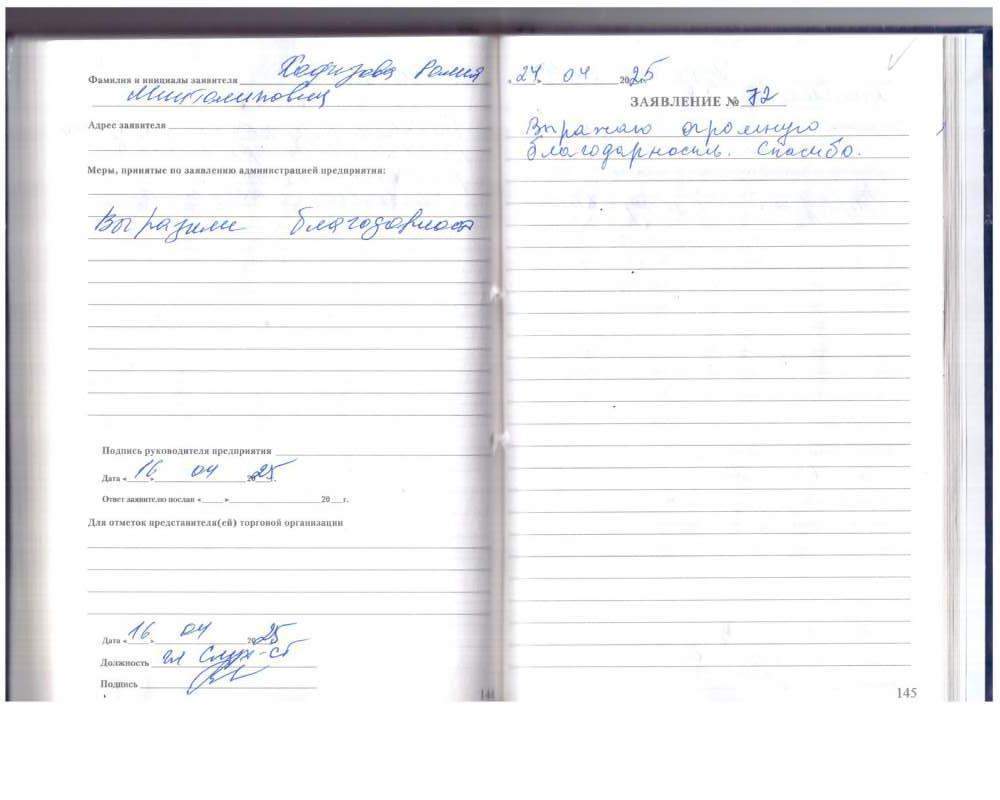 Фамилия и инициалы заявителя Хафизова Ромия
Адрес заявителя
Меры, принятые по заявлению администрацией предприятия:
Выразили благодарность
Подпись руководителя предприятия
Дата «16» 04 2025 г.
Ответ заявителю послан « » 20 г.
Для отметок представителя(ей) торговой организации
Дата «16» 04 2025
Должность гл
Подпись
«24» 04 2025
ЗАЯВЛЕНИЕ № 72
Выражаю огромную
благодарность. Спасибо.
145